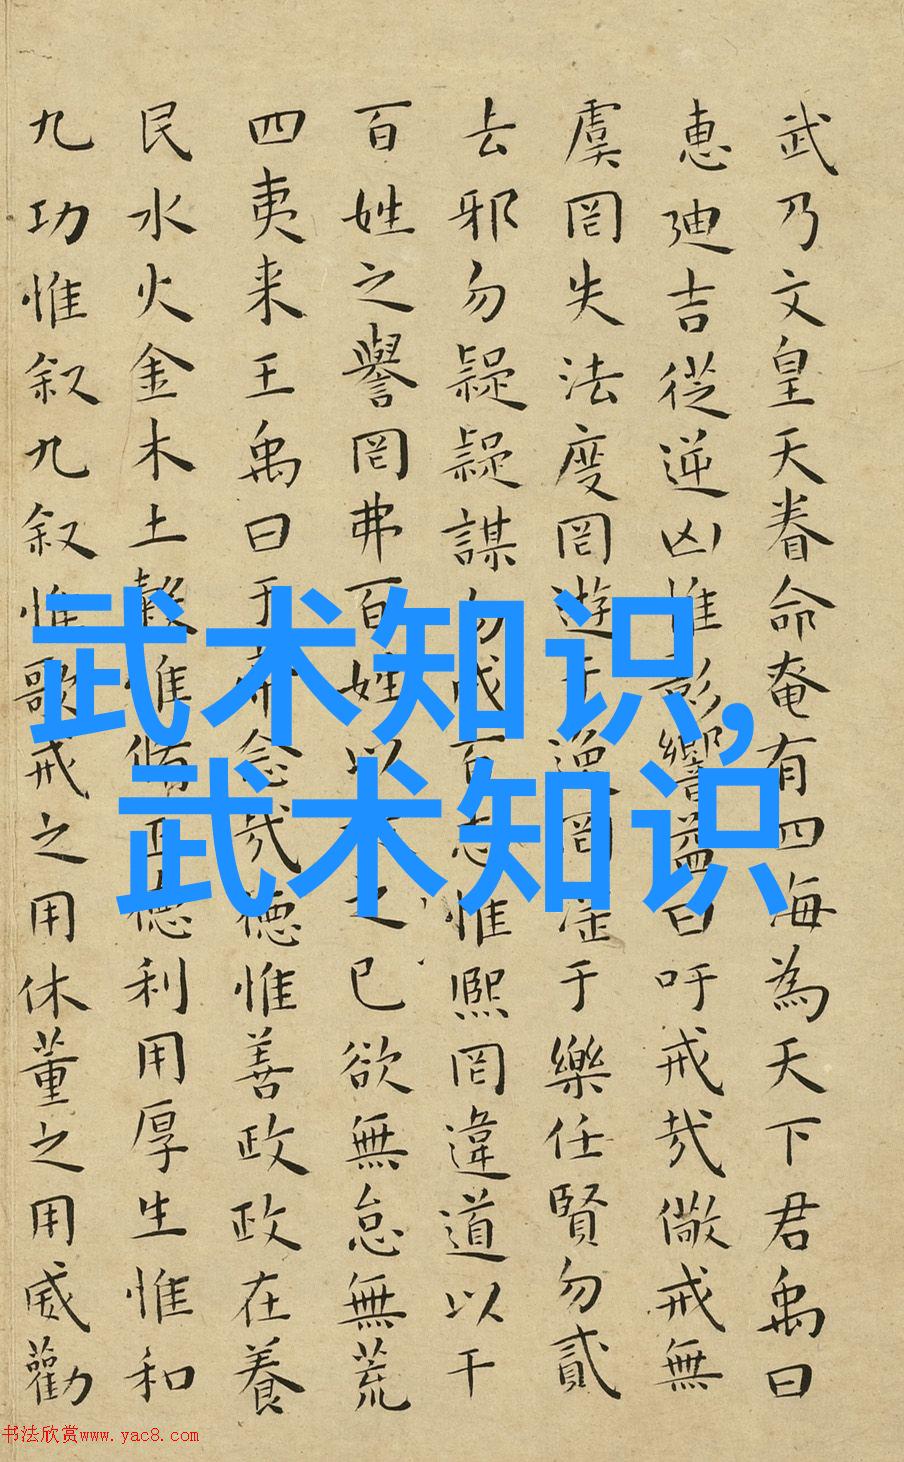 武乃文皇天眷命奄有四海為天下君禹曰
惠迪吉從逆凶惟影響益曰吁戒哉儆戒無
虞罔失法度罔遊于逸罔淫于樂任賢勿貳
去邪勿疑疑謀勿成百志惟熙罔違道以干
百姓之譽罔弗百姓以之已欲無怠無荒
四夷来王禹曰于帝念哉德惟善政政在養
民水火金木土穀惟脩正德利用厚生惟和
九功惟叙九叙惟歌戒之用休董之用威勸
武术知识,
武术知识
书法欣赏www.yac8.com